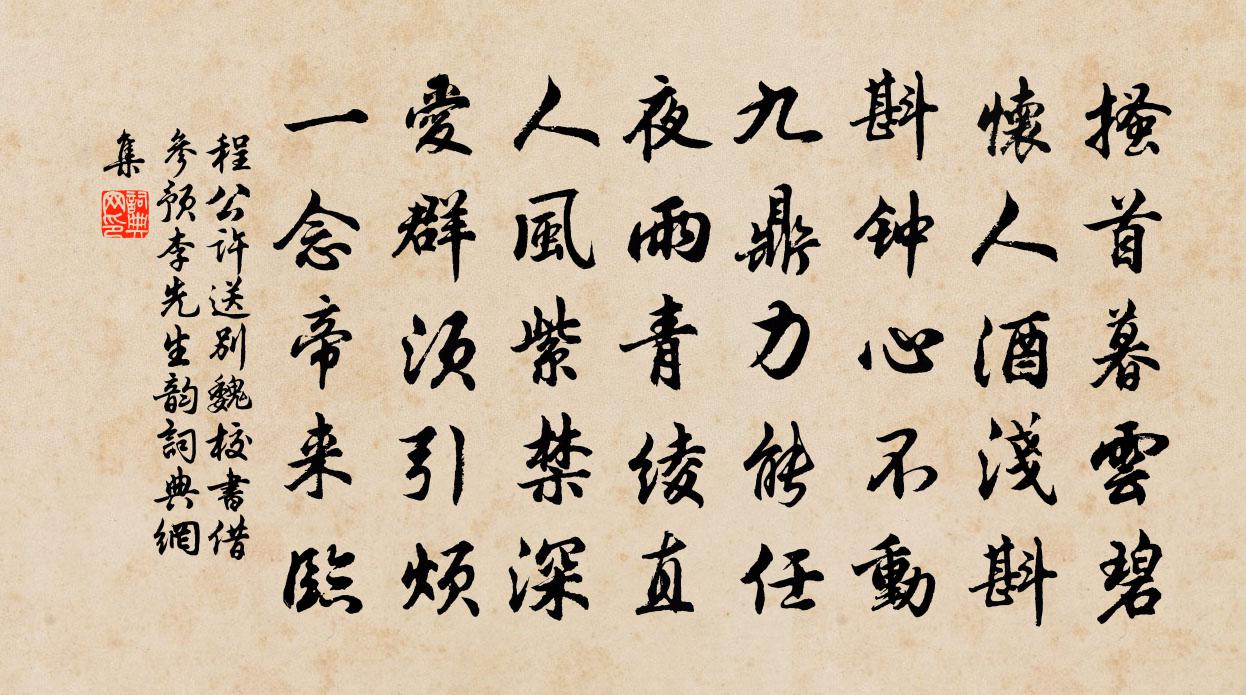 搔首暮雲碧
懷人酒淺斟
斟钟心不動
九鼎力能任
夜雨青綾直
人風紫禁深
愛群須引煩
一念帝来臨
程公許送別魏校書借
參預李先生韵詞典網
集
詞典网印